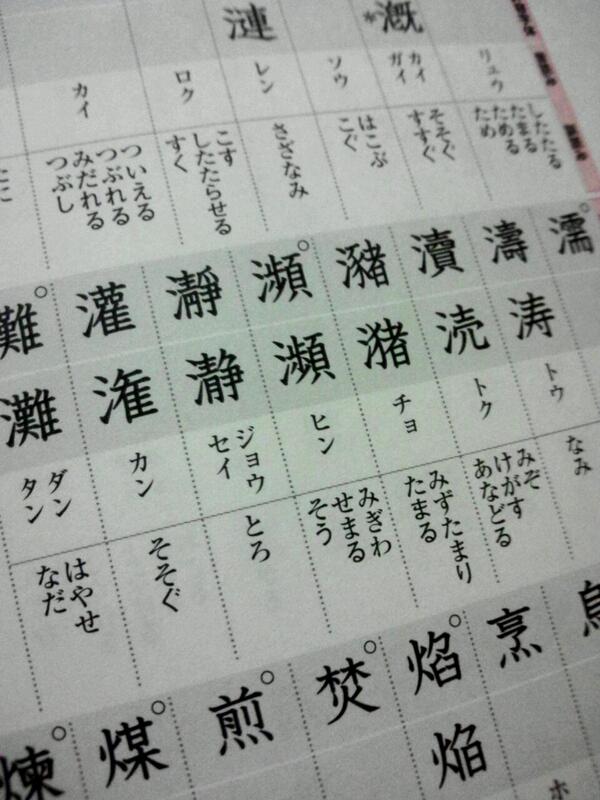 漑
漣
リュウ
カイ
ガイ
ソウ
レン
ロク
カイ
したたる
たまる
ためる
ため
そそぐ
すすぐ
はこぶ
こぐ
さざなみ
こす
したたらせる
すく
ついえる
つぶれる
みだれる
つぶし
濡
濤
瀆
瀦
瀕
瀞
灌
灘
涛
涜
潴
瀕
瀞
潅
灘
トウ
トク
チョ
ヒン
ジョウ
セイ
カン
ダン
タン
なみ
みぞ
けがす
あなどる
みずたまり
たまる
みぎわ
せまる
そう
とろ
そそぐ
はやせ
なだ
烹
焰
焚
煎
煤
煉
焔
ホ